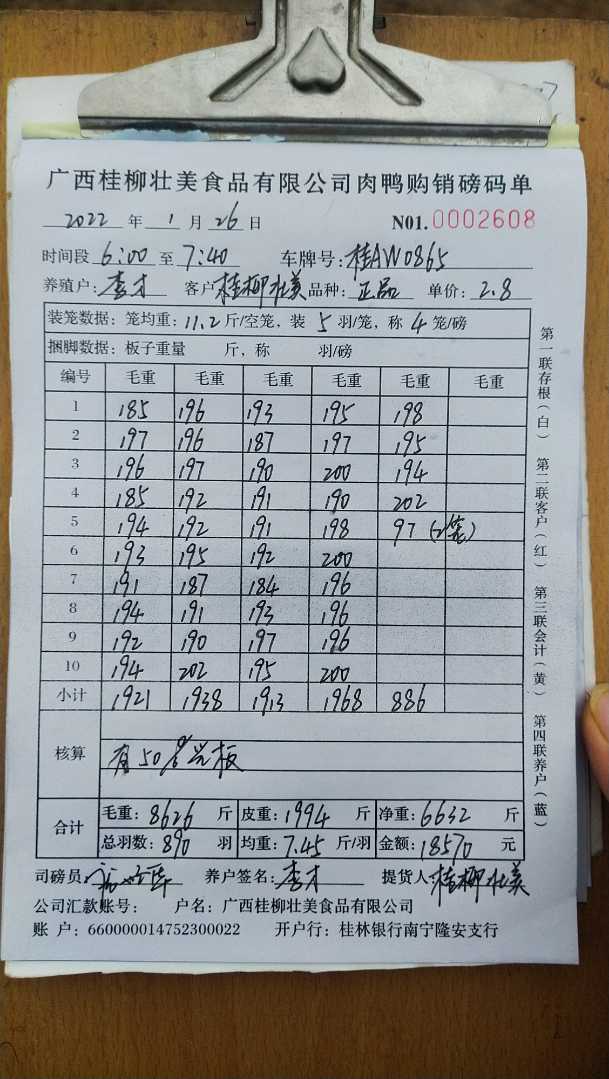 广西桂柳壮美食品有限公司肉鸭购销磅码单
2022 年 1 月 26 日 N01.0002608
时间段 6:00 至 7:40 车牌号: 桂AW0865
养殖户: 李才 客户 桂柳壮美 品种: 正品 单价: 2.8
装笼数据: 笼均重: 11.2 斤/空笼, 装 5 羽/笼, 称 4 笼/磅
捆脚数据: 板子重量 斤, 称 羽/磅
编号 毛重 毛重 毛重 毛重 毛重 毛重
1 185 196 193 195 198
2 197 196 187 197 195
3 196 197 190 200 194
4 185 192 191 190 202
5 194 192 191 198 97 (2笼)
6 193 195 192 200
7 191 187 184 196
8 194 191 193 196
9 192 190 197 196
10 194 202 195 200
小计 1921 1938 1913 1968 886
核算 有50 板
合计 毛重: 8626 斤 皮重: 1994 斤 净重: 6632 斤
总羽数: 890 羽 均重: 7.45 斤/羽 金额: 18570 元
司磅员: 养户签名: 李才 提货人 桂柳壮美
公司汇款账号: 户名: 广西桂柳壮美食品有限公司
账 户: 660000014752300022 开户行: 桂林银行南宁隆安支行
第一联存根(白) 第二联客户(红) 第三联会计(黄) 第四联养户(蓝)